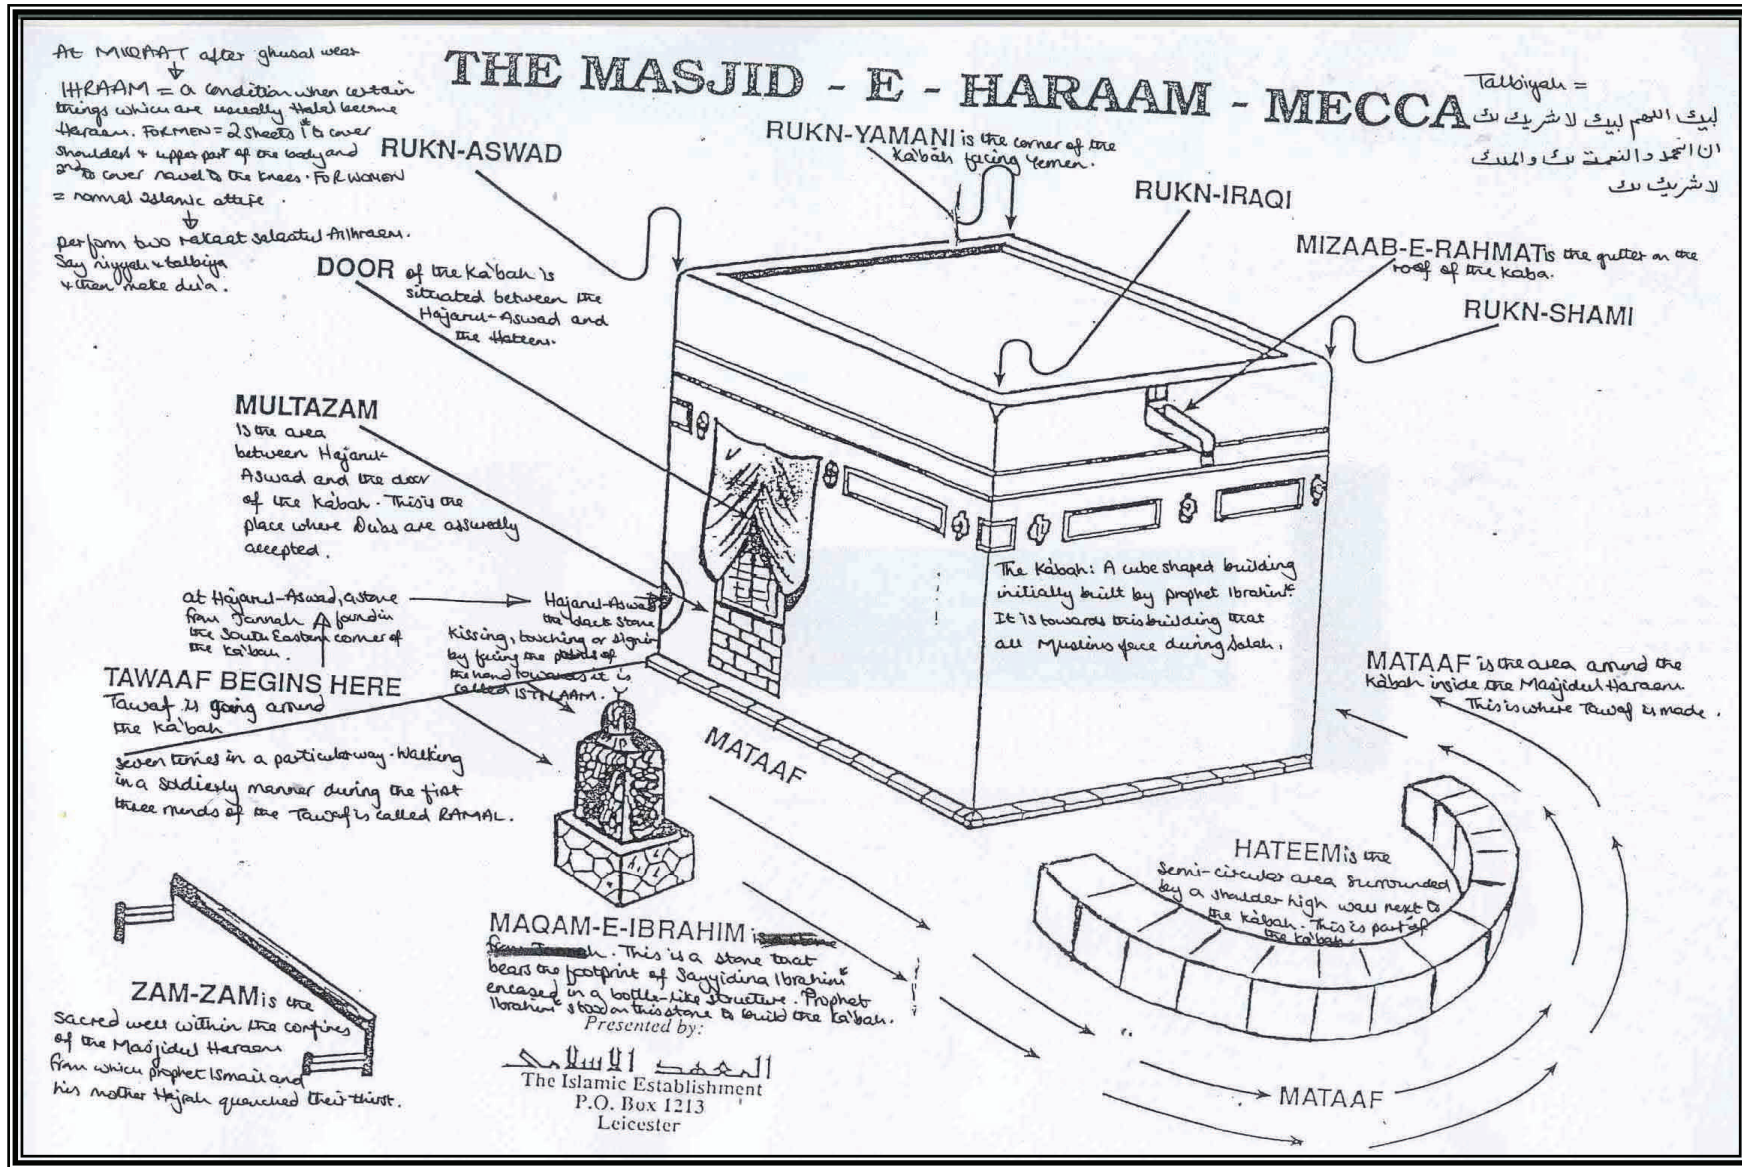 THE MASJID - E - HARAAM - MECCA
At MIQAAT after ghusal wear
IHRAAM = a condition when certain
things which are usually Halal become
Haraam. FOR MEN = 2 sheets 1st to cover
shoulders + upper part of the body and
2nd to cover navel to the knees. FOR WOMEN
= normal Islamic attire.
perform two rakaat salaatul Ihraam.
Say niyyah + talbiya
+ then make du'a.
Talbiyah =
لبيك اللهم لبيك لا شريك لك
ان الحمد والنعمة لك والملك
لا شريك لك
RUKN-ASWAD
RUKN-YAMANI is the corner of the
Ka'bah facing Yemen.
RUKN-IRAQI
MIZAAB-E-RAHMAT is the gutter on the
roof of the Kaba.
RUKN-SHAMI
DOOR of the Ka'bah is
situated between the
Hajarul-Aswad and
the Hateem.
MULTAZAM
Is the area
between Hajarul-
Aswad and the door
of the Ka'bah. This is the
place where Du'as are assuredly
accepted.
at Hajarul-Aswad, a stone
from Jannah found in
the South Eastern corner of
the Ka'bah.
Hajarul-Aswad
the black stone
Kissing, touching or signin
by facing the palms of
the hand towards it is
called ISTILAAM.
TAWAAF BEGINS HERE
Tawaf is going around
the Ka'bah
seven times in a particular way. Walking
in a soldierly manner during the first
three rounds of the Tawaf is called RAMAL.
The Ka'bah: A cube shaped building
initially built by prophet Ibrahim
It is towards this building that
all Muslims face during Salah.
MATAAF is the area around the
Ka'bah inside the Masjidul Haraam.
This is where Tawaf is made.
MATAAF
HATEEM is the
semi-circular area surrounded
by a shoulder high wall next to
the Ka'bah. This is part of
the Ka'bah.
MAQAM-E-IBRAHIM is a stone
from Jannah. This is a stone that
bears the footprint of Sayyidina Ibrahim
encased in a bottle-like structure. Prophet
Ibrahim stood on this stone to build the Ka'bah.
ZAM-ZAM is the
sacred well within the confines
of the Masjidul Haraam
from which prophet Ismail and
his mother Hajrah quenched their thirst.
Presented by:
المعهد الإسلامي
The Islamic Establishment
P.O. Box 1213
Leicester
MATAAF